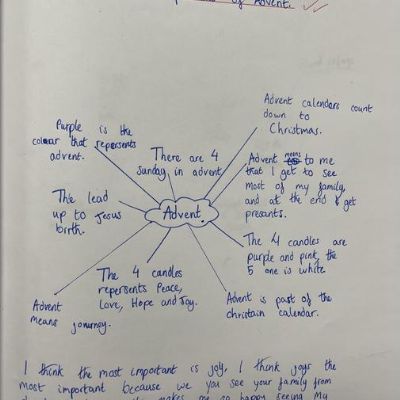 of Advent.
Advent calendars count
down to
Christmas.
Purple is the
colour that repersents
advent.
There are 4
sunday in advent
Advent means to me
that I get to see
most of my family,
and at the end I get
presants.
The lead
up to Jesus
birth.
Advent
The 4 candles are
purple and pink, the
5 one is white
The 4 candles
repersents Peace,
Love, Hope and Joy.
Advent is part of the
christain calendar.
Advent
means journey.
I think the most important is joy. I think joys the
most important because we you see your family from
makes me so happy seeing my